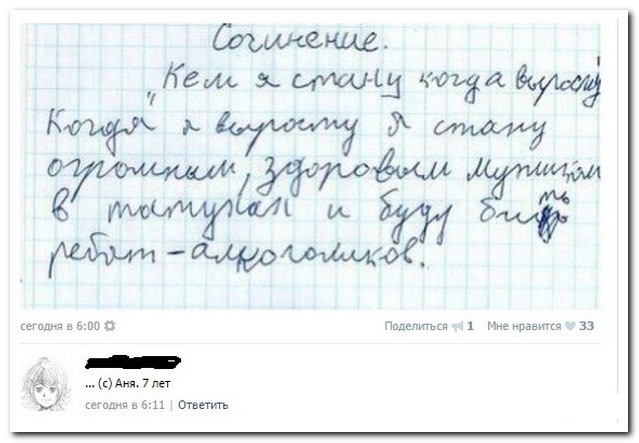 Сочинение.
"Кем я стану когда вырасту"
Когда я вырасту я стану
огромным, здоровым мужиком
в татухах и буду бить
ребят-алкоголиков.
сегодня в 6:00
Поделиться 1 Мне нравится 33
... (с) Аня. 7 лет
сегодня в 6:11 | Ответить